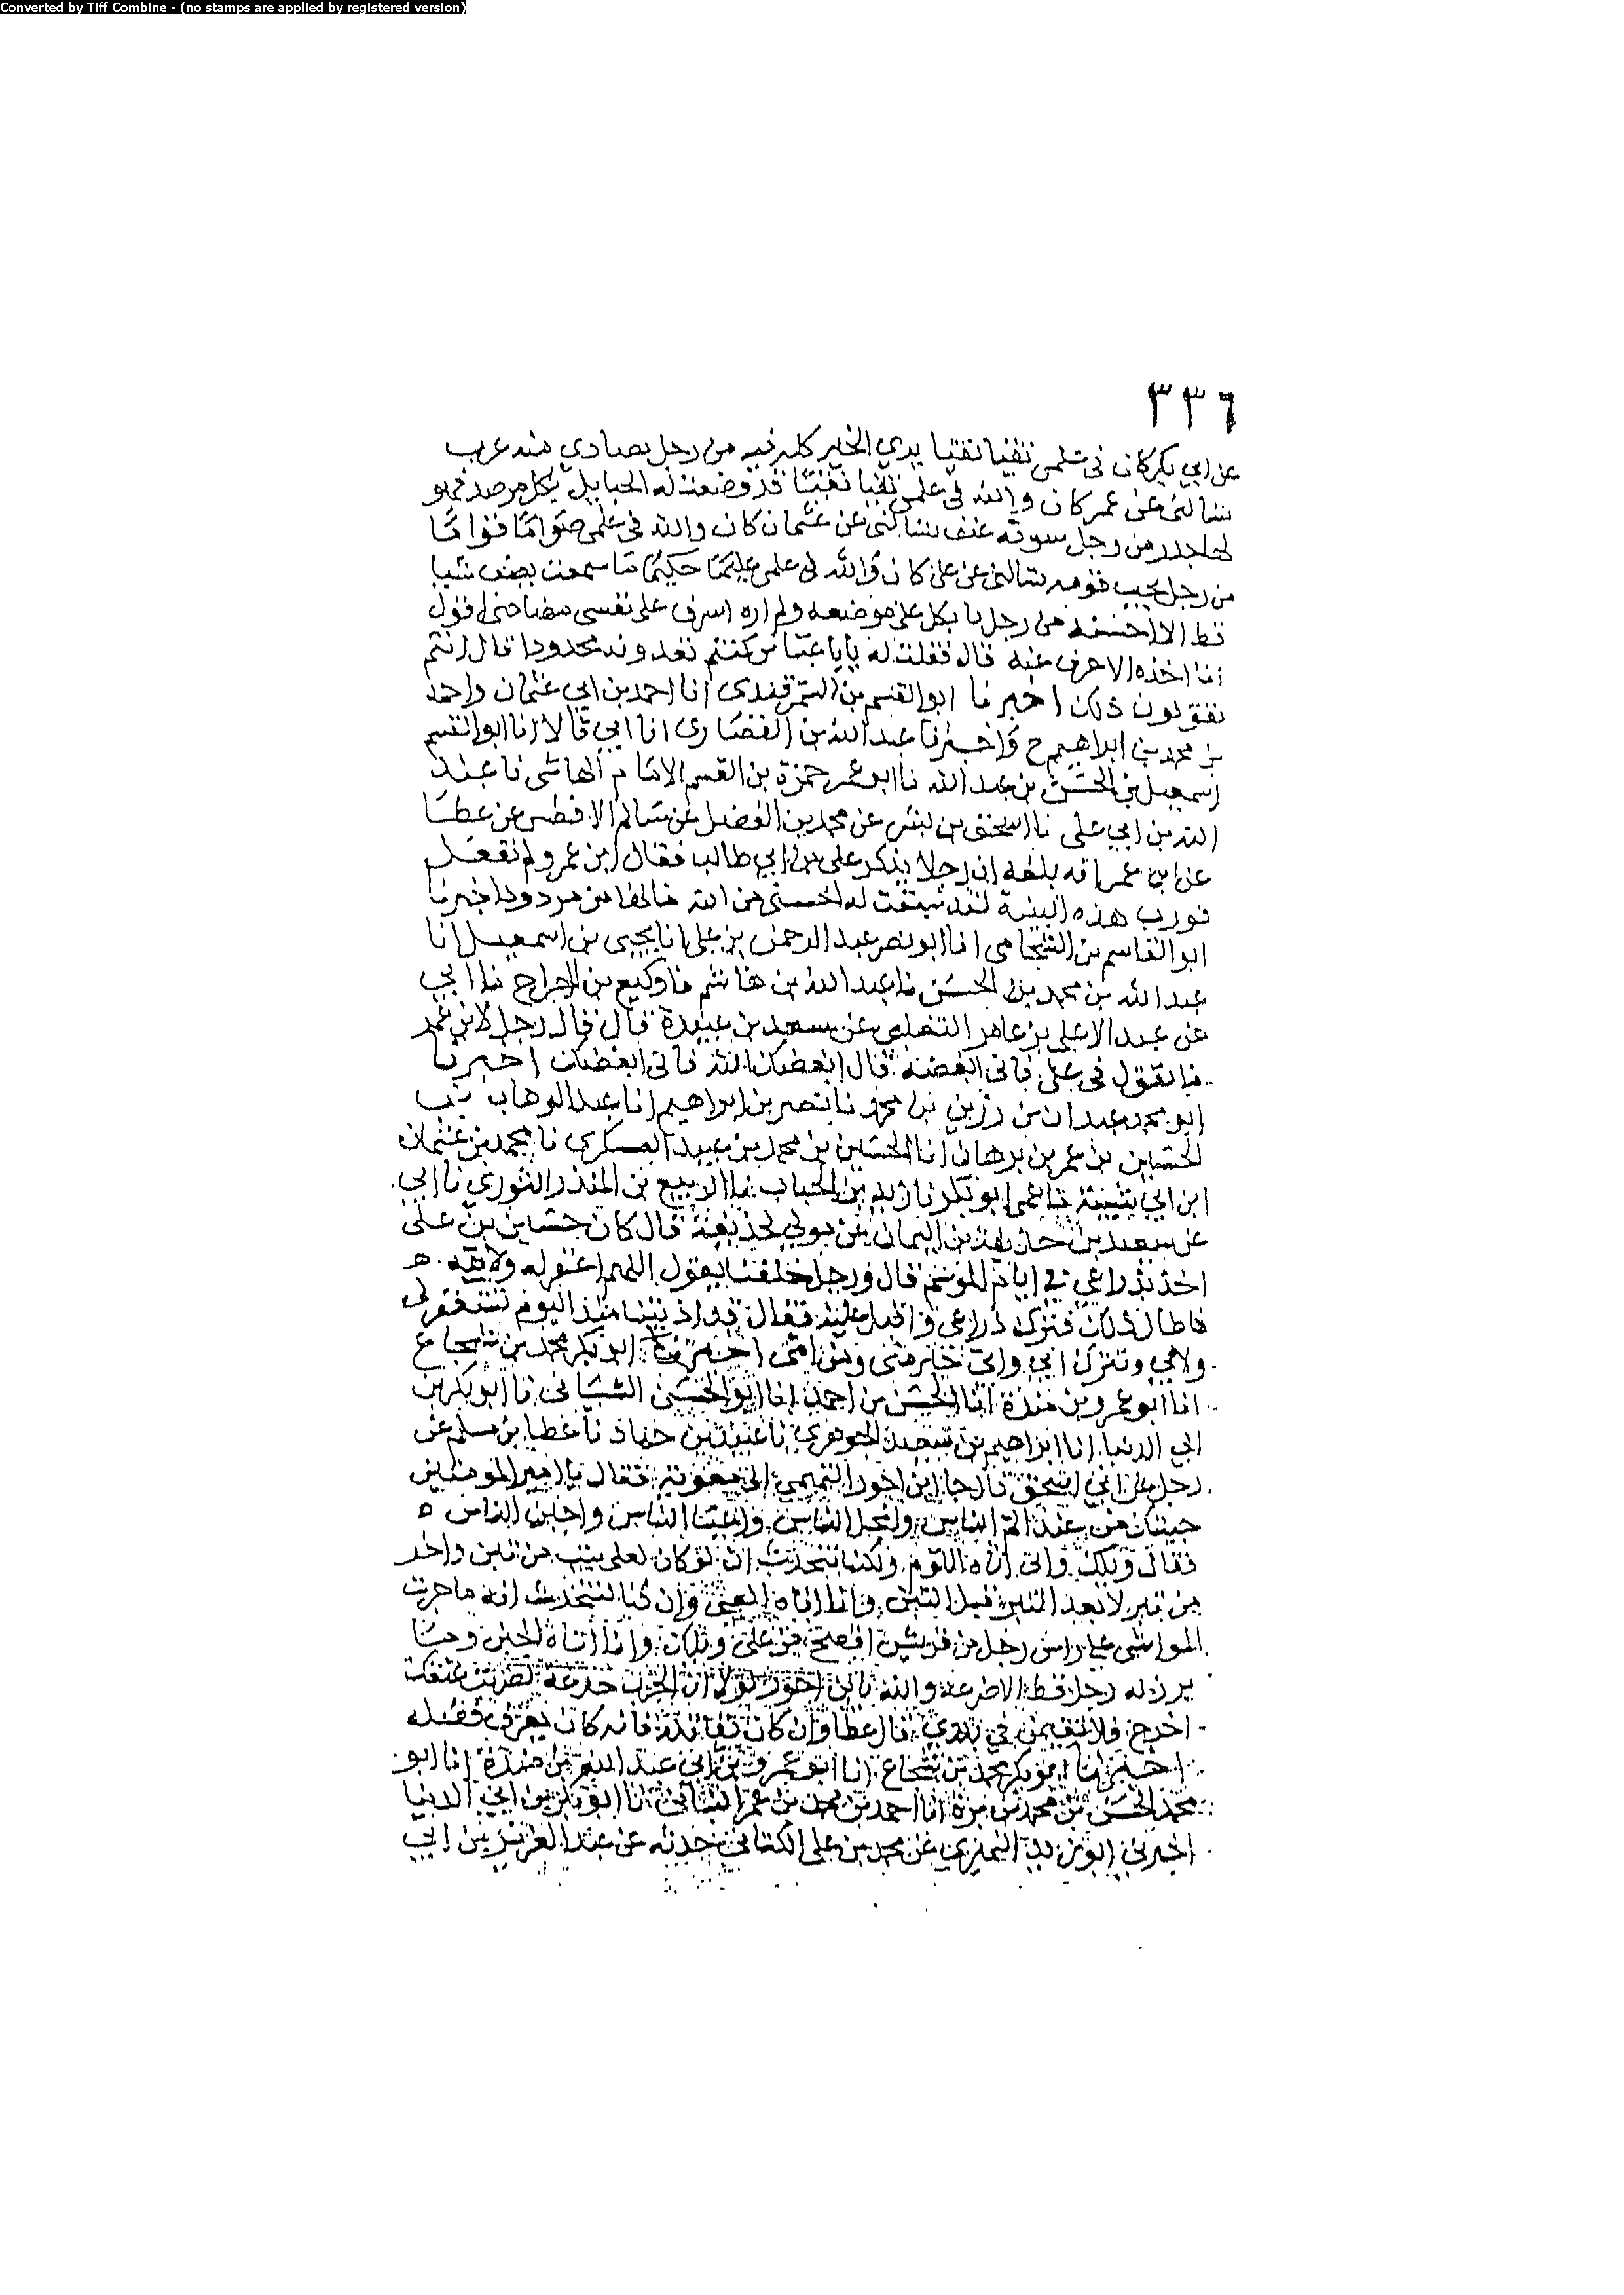 Converted by Tiff Combine - (no stamps are applied by registered version)
٣٣٦
عن ابي بكر كان في علمي تقيا نقيا يدي الخير كلير فيه من رجل يصادي منه عرب
سالتني عن عمر كان والله في علمي تقيا نقيا قد وضعت له الحبايل بكل مرصد فهو
لها حذر من رجل سوقه عنف سالتني عن عثمان كان والله في علمي صواما قواما
من رجل يحب قومه سالتني عن علي كان والله في علمي عليما حكيما ما سمعت بصف شيا
قط الا احسنه من رجل باكل على موضعه ولم اره اشرف على نفسي حتى اقول
انا اخذه الاحرف عنه قال فقلت له يابا عباس كنتم تعدونه محدودا قال انتم
تقولون ذلك اخبرنا ابو القسم بن السمرقندي انا احمد بن ابي عثمان واحمد
بن محمد بن ابراهيم ح واخبرنا عبد الله بن القصاري انا ابي قالا انا ابو القسم
اسمعيل بن الحسن بن عبد الله نا ابو عمر حمزة بن القسم الامام الهاشمي نا عبد
الله بن ابي علي نا اسحق بن بشر عن محمد بن الفضل عن سالم الافطس عن عطا
عن ابن عمر انه بلغه ان رجلا يذكر علي بن ابي طالب فقال ابن عمر ولم تفعل
فورب هذه البنية لقد سبقت له الحسنى من الله ما لها من مردود اخبرنا
ابو القاسم بن الشحامي انا ابو نصر عبد الرحمن بن علي انا يحيى بن اسمعيل انا
عبد الله بن محمد بن الحسن نا عبد الله بن هاشم نا وكيع بن الجراح نا ابي
عن عبد الاعلى بن عامر الثعلبي عن سعد بن عبيدة قال قال رجل لابن عمر
ما تقول في علي فاني ابغضه قال ابغضك الله فاني ابغضك اخبرنا
ابو محمد عبدان بن رزين بن محمد نا نصر بن ابراهيم انا عبد الوهاب بن
الحسين بن عمر بن برهان انا الحسين بن محمد بن عبيد العسكري نا محمد بن عثمان
ابن ابي شيبة نا عمي ابو بكر نا زيد بن الحباب نا الربيع بن المنذر الثوري نا ابي
عن سعد بن حذيفة بن اليمان عن مولى لحذيفة قال كان حسين بن علي
اخذ بذراعي في ايام الموسم قال ورجل خلفنا يقول اللهم اغفر له ولامه ه
فاطال ذلك فترك ذراعي واقبل عليه فقال قد اذيتنا منذ اليوم تستغفر لي
ولامي وتترك ابي وابي خير مني ومن امي اخبرنا ابو بكر محمد بن شجاع
انا ابو عمرو بن مندة انا الحسن بن احمد انا ابو الحسن النسائي نا ابو بكر بن
ابي الدنيا انا ابراهيم بن سعيد الجوهري نا عبيد بن حماد نا عطا بن مسلم عن
رجل عن ابي اسحق قال جا ابن احور التميمي الى معوية فقال يا امير المومنين
جيتك من عند الم الناس وابخل الناس واعيا الناس واجبن الناس ه
فقال ويلك وانى اتاه اللوم ولكنا نتحدث ان لو كان لعلي بيت من تبن واخر
من تبر لانفد التبر قبل التبن وانى اتاه العي وان كنا لنتحدث انه ما جرت
المواسي على راس رجل من قريش افصح من علي ويلك وانى اتاه الجبن وما
برز له رجل قط الا صرعه والله يا ابن احور لولا ان الحرب خدعة لضربت عنقك
اخرج فلا تقيمن في بلدي قال عطا وان كان يقاتله فانه كان يعرف فضله
اخبرنا ابو بكر محمد بن شجاع انا ابو عمرو بن ابي عبد الله بن مندة انا ابو
محمد الحسن بن محمد بن يوة انا احمد بن محمد بن عمر اللبناني نا ابو بكر بن ابي الدنيا
اخبرني ابو زيد النميري عن محمد بن علي الكناني حدثه عن عبد العزيز بن ابي